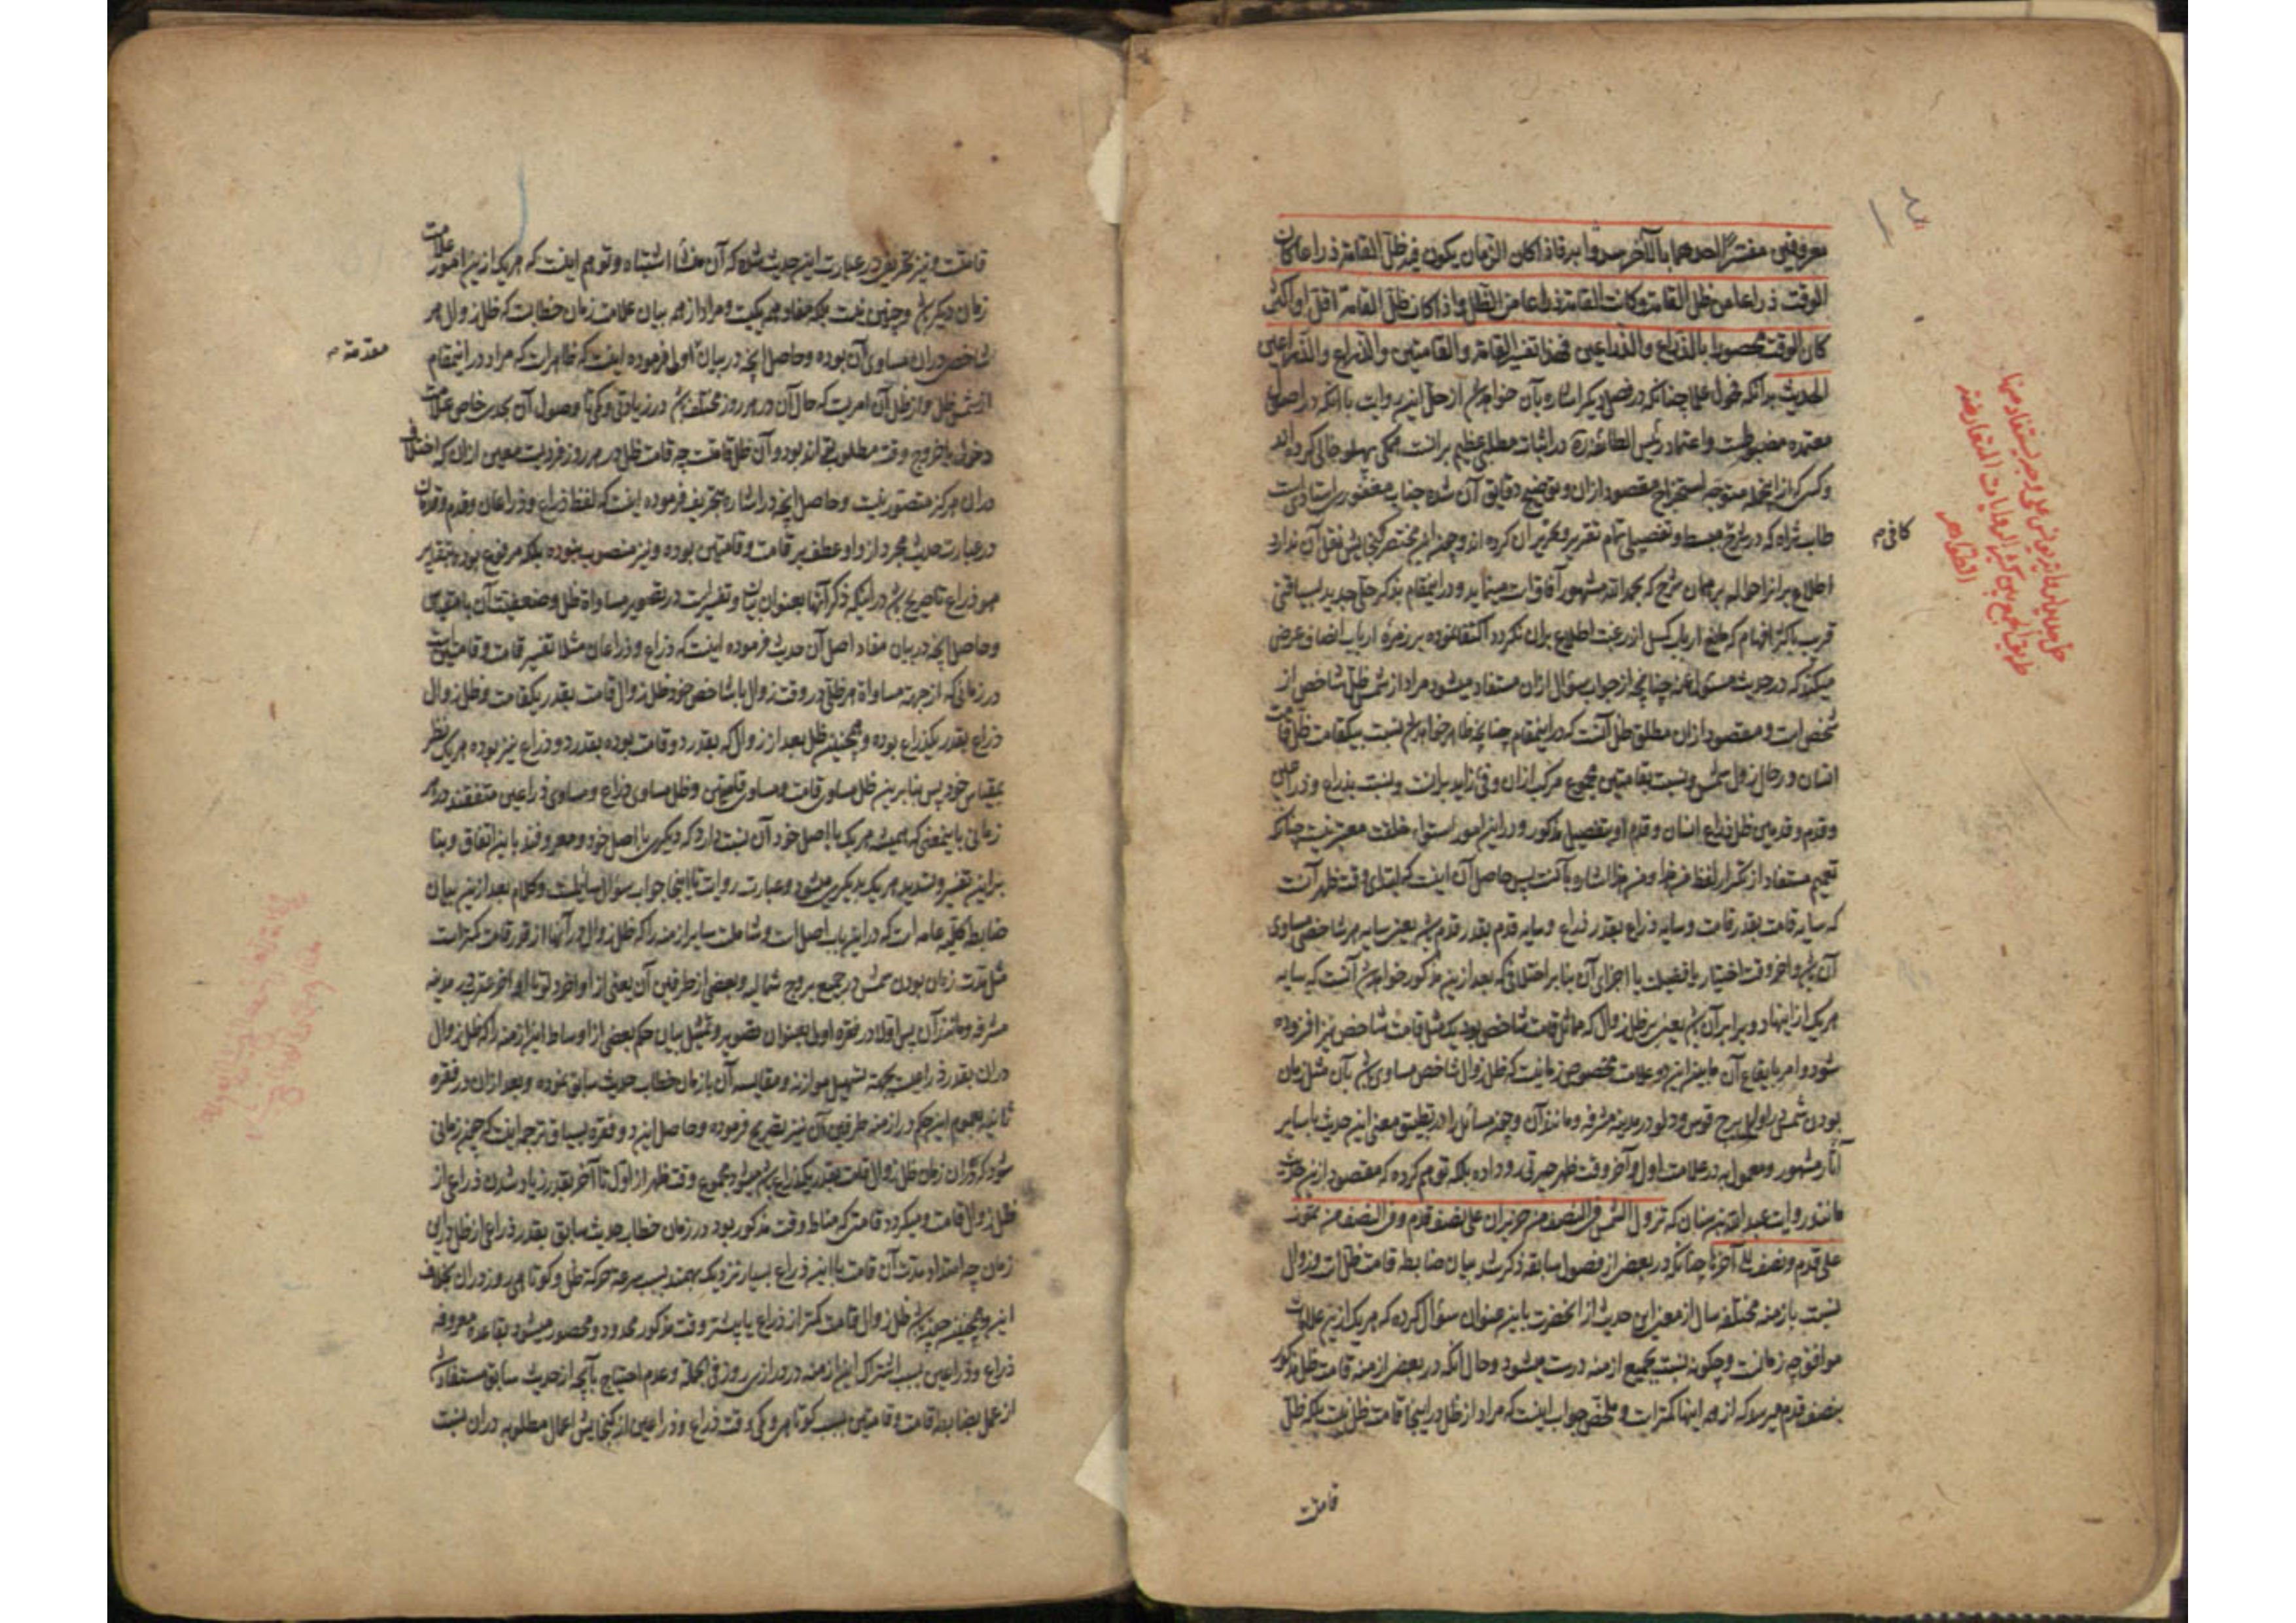 معروفین مفسرا احدهما بالآخر مسددا به فاذا کان الزمان یکون فیه ظل القامة ذراعا کان
الوقت ذراعا من ظل القامة وکانت القامة ذراعا من الظل واذا کان ظل القامة اقل او اکثر
کان الوقت محصورا بالذراع والذراعین فهذا تفسیر القامة والقامتین والذراع والذراعین
الحدیث بدانکه فحول علما چنانکه در فصل دیگر اشاره بآن خواهد شد از حل این روایت با آنکه در اصول
معتمده مضبوطست و اعتماد رئیس الطائفه در اثبات مطلبی عظیم برانست همگی پهلو خالی کرده‌اند
و کسی که از ایشان متوجه استخراج مقصود ازان و توضیح دقایق آن شده جناب مغفور استادیست
طاب ثراه که در شرح مبسط و تفصیلی تمام تقریر و تحریر آن کرده‌اند و چون این مختصر گنجایش نقل آن ندارد
کافی
اطلاع برانرا حواله بر همان شرح که بحمد الله مشهور آفاقست مینماید و در اینمقام بذکر حلی جدید بسیاقتی
قریب باکثر افهام که مانع ارباب کسل از رغبت اطلاع بران نگردد اکتفا نموده بر زمره ارباب انصاف عرض
میکند که در حدیث مسئول عنه چنانچه از جواب سؤال ازان مستفاد میشود مراد از شمس ظل شاخص از
شخص است و مقصود ازان مطلق ظل آنست که در اینمقام چنانچه ظاهر خواهد شد نسبت بیکقامت ظل قامت
انسان در حال زوال شمس و نسبت بقامتین مجموع مرکب ازان و فئ زاید برانست و نسبت بذراع و ذراعین
و قدم و قدمین ظل ذراع انسان و قدم او بتفصیل مذکور و در این امور استوای خلقت معتبر نیست چنانکه
تعمیم مستفاد از تکرار لفظ من هذا و من هذا اشاره بآنست پس حاصل آن اینست که ابتدای وقت ظهر آنست
که سایه قامت بقدر قامت و سایه ذراع بقدر ذراع و سایه قدم بقدر قدم باشد یعنی سایه هر شاخص مساوی
آن باشد و آخر وقت اختیار یا فضیلت یا اجزای آن بنا بر اختلافی که بعد ازین مذکور خواهد شد آنست که سایه
هر یک از اینها دو برابر آن باشد یعنی بر ظل زوال که مماثل قامت شاخص بود یک مثل قامت شاخص نیز افزوده
شود و امر بایقاع آن مابین این دو علامت مخصوص زمانیست که ظل زوال شاخص مساوی باشد بآن مثل زمان
بودن شمس در اوایل برج قوس و دلو در مدینه مشرفه و مانند آن و چون سائل را در تطبیق معنی این حدیث با سایر
آثار مشهور و معمول به در علامت اول و آخر وقت ظهر حیرتی رو داده بلکه توهم کرده که مقصود ازین حدیث
مانند روایت عبد الله بن سنان که تزول الشمس فی النصف من حزیران علی نصف قدم و فی النصف من تموز
علی قدم و نصف الی آخرها چنانکه در بعضی از فصول سابقه ذکر شد بیان ضابطه قامت ظلست در زوال
نسبت بازمنه مختلفه سال از معنی این حدیث از آنحضرت باین عنوان سؤال کرده که هر یک ازین علامات
موافق چه زمانست و چگونه نسبت بجمیع ازمنه درست میشود و حال آنکه در بعضی ازمنه قامت ظل مذکور
بنصف قدم میرسد که از همه اینها کمتر است و ملخص جواب اینست که مراد از ظل در اینجا قامت ظل نیست بلکه ظل
قامت
قامتست و نیز تحریفی در عبارت این حدیث شده که آن منشأ اشتباه و توهم اینست که هر یک ازین امور علامت
زمان دیگر باشد و چنین نیست بلکه مفاد همه یکیست و مراد از همه بیان علامت زمان خطابست که ظل زوال هر
شاخص دران مساوی آن بوده و حاصل آنچه در بیان اولی فرموده اینست که ظاهر است که مراد در اینمقام
مقدمه
از شمس ظل و از ظل آن امریست که حال آن در هر روز مختلف باشد در زیادتی و کمی تا وصول آن بحدی خاص علامت
دخول یا خروج وقت مطلوب تواند بود و آن ظل قامتست چه قامت ظل در هر روز فردیست معین ازان که اختلاف
دران هرگز متصور نیست و حاصل آنچه در اشاره بتحریف فرموده اینست که لفظ ذراع و ذراعان و قدم و قدمان
در عبارت حدیث مجرد از واو عطف بر قامت و قامتین بوده و نیز منصوب نبوده بلکه مرفوع بوده بتقدیر
هو ذراع تا صریح باشد در اینکه ذکر آنها بعنوان بیان و تفسیر است در تصویر مساواة ظل و ضعفیت آن با مقیاس
و حاصل آنچه در بیان مفاد اصل آن حدیث فرموده اینست که ذراع و ذراعان مثلا تفسیر قامت و قامتین است
در زمانی که از جهت مساواة هر ظلی در وقت زوال با شاخص خود ظل زوال قامت بقدر یکقامت و ظل زوال
ذراع بقدر یکذراع بوده و همچنین ظل بعد از زوال که بقدر دو قامت بوده بقدر دو ذراع نیز بوده هر یک نظر
بمقیاس خود پس بنابرین ظل مساوی قامت و مساوی قامتین و ظل مساوی ذراع و مساوی ذراعین متفقند در هر
زمانی باینمعنی که همیشه هر یک با اصل خود آن نسبت دارد که دیگری با اصل خود و معروفند باین اتفاق و بنا
براین تفسیر و تسدید هر یک بدیگری میشود و عبارت روایت تا اینجا جواب سؤال سایلست و کلام بعد ازین بیان
ضابطه کلیه عامه است که در این باب اصل است و شاملست سایر ازمنه را که ظل زوال در آنها از قدر قامت کمتر است
مثل مدت زمان بودن شمس در جمیع بروج شمالیه و بعضی از طرفین آن یعنی از اواخر دلو تا اواخر عقرب در مدینه
مشرفه و مانند آن پس اولا در فقره اولی بعنوان تصویر و تمثیل بیان حکم بعضی از اوساط این ازمنه را که ظل زوال
دران بقدر ذراعیست بجهة تسهیل موازنه و مقایسه آن با زمان خطاب حدیث سابق نموده و بعد ازان در فقره
ثانیه بعموم این حکم در ازمنه طرفین آن نیز تصریح فرموده و حاصل این دو فقره بسیاق ترجمه اینست که چون زمانی
شود که دران زمان ظل زوال قامت بقدر یکذراع باشد میشود مجموع وقت ظهر از اول تا آخر بقدر زیاد شدن ذراعی از
ظل زوال قامت و میگردد قامتی که مناط وقت مذکور بود در زمان خطاب حدیث سابق بقدر ذراعی از ظل در این
زمان چه امتداد مدت آن قامت با این ذراع بسیار نزدیک بهمند بسبب سرعت حرکة ظل و کوتاهی روز دران بخلاف
این و همچنین چون باشد ظل زوال قامت کمتر از ذراع یا بیشتر وقت مذکور محدود و محصور میشود بقاعده معروفه
ذراع و ذراعین بسبب اشتراک این ازمنه در درازی روز فی الجمله و عدم احتیاج بآنچه از حدیث سابق مستفاد شد
از عمل بضابطه قامت و قامتین بسبب کوتاهی و کمی وقت ذراع و ذراعین از گنجایش اعمال مطلوبه دران نسبت